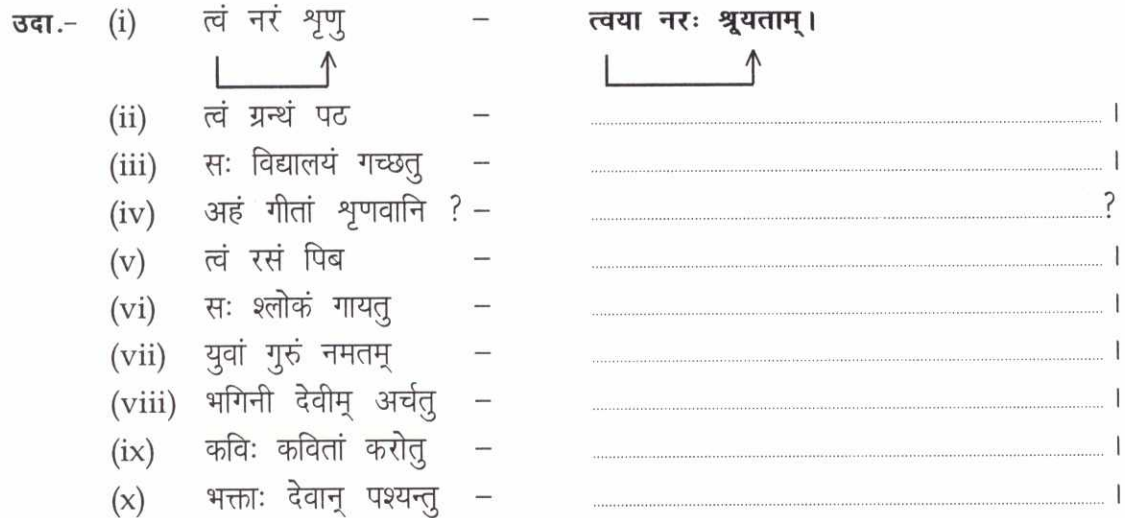 उदा.– (i) त्वं नरं शृणु – त्वया नरः श्रूयताम्।
(ii) त्वं ग्रन्थं पठ – ।
(iii) सः विद्यालयं गच्छतु – ।
(iv) अहं गीतां शृणवानि ? – ?
(v) त्वं रसं पिब – ।
(vi) सः श्लोकं गायतु – ।
(vii) युवां गुरुं नमतम् – ।
(viii) भगिनी देवीम् अर्चतु – ।
(ix) कविः कवितां करोतु – ।
(x) भक्ताः देवान् पश्यन्तु – ।